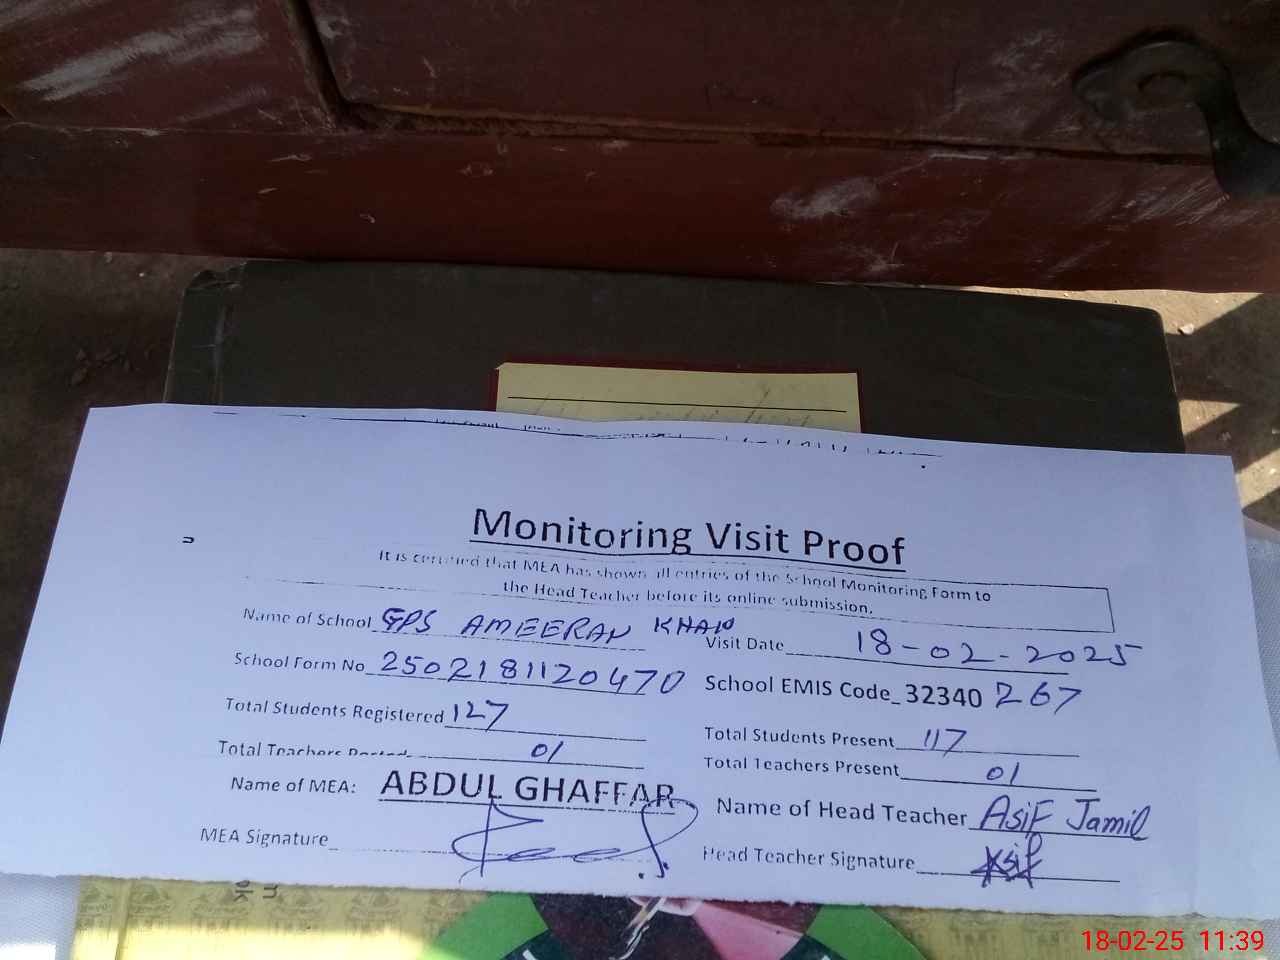 Monitoring Visit Proof
It is certified that MEA has shown all entries of the School Monitoring Form to
the Head Teacher before its online submission.
Name of School GPS AMEERAN KHAN Visit Date 18-02-2025
School Form No 2502181120470 School EMIS Code_ 32340 267
Total Students Registered 127 Total Students Present 117
Total Teachers Posted 01 Total Teachers Present 01
Name of MEA: ABDUL GHAFFAR Name of Head Teacher Asif Jamil
MEA Signature Head Teacher Signature Asif
18-02-25 11:39